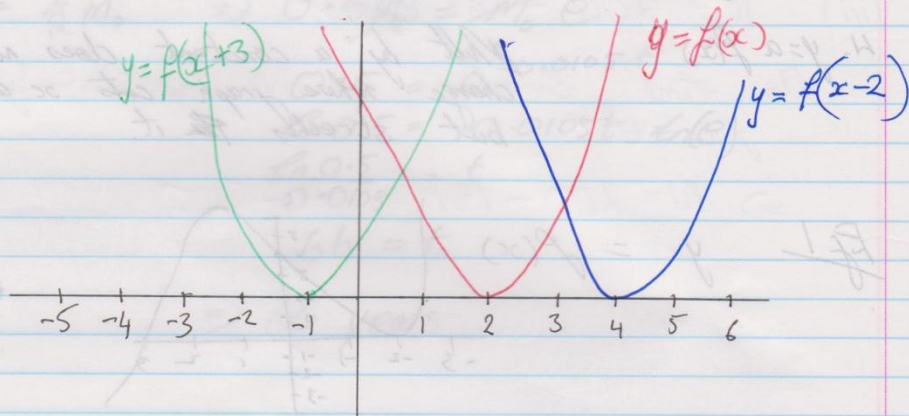 y = f(x+3)
y = f(x)
y = f(x-2)
-5 -4 -3 -2 -1 1 2 3 4 5 6